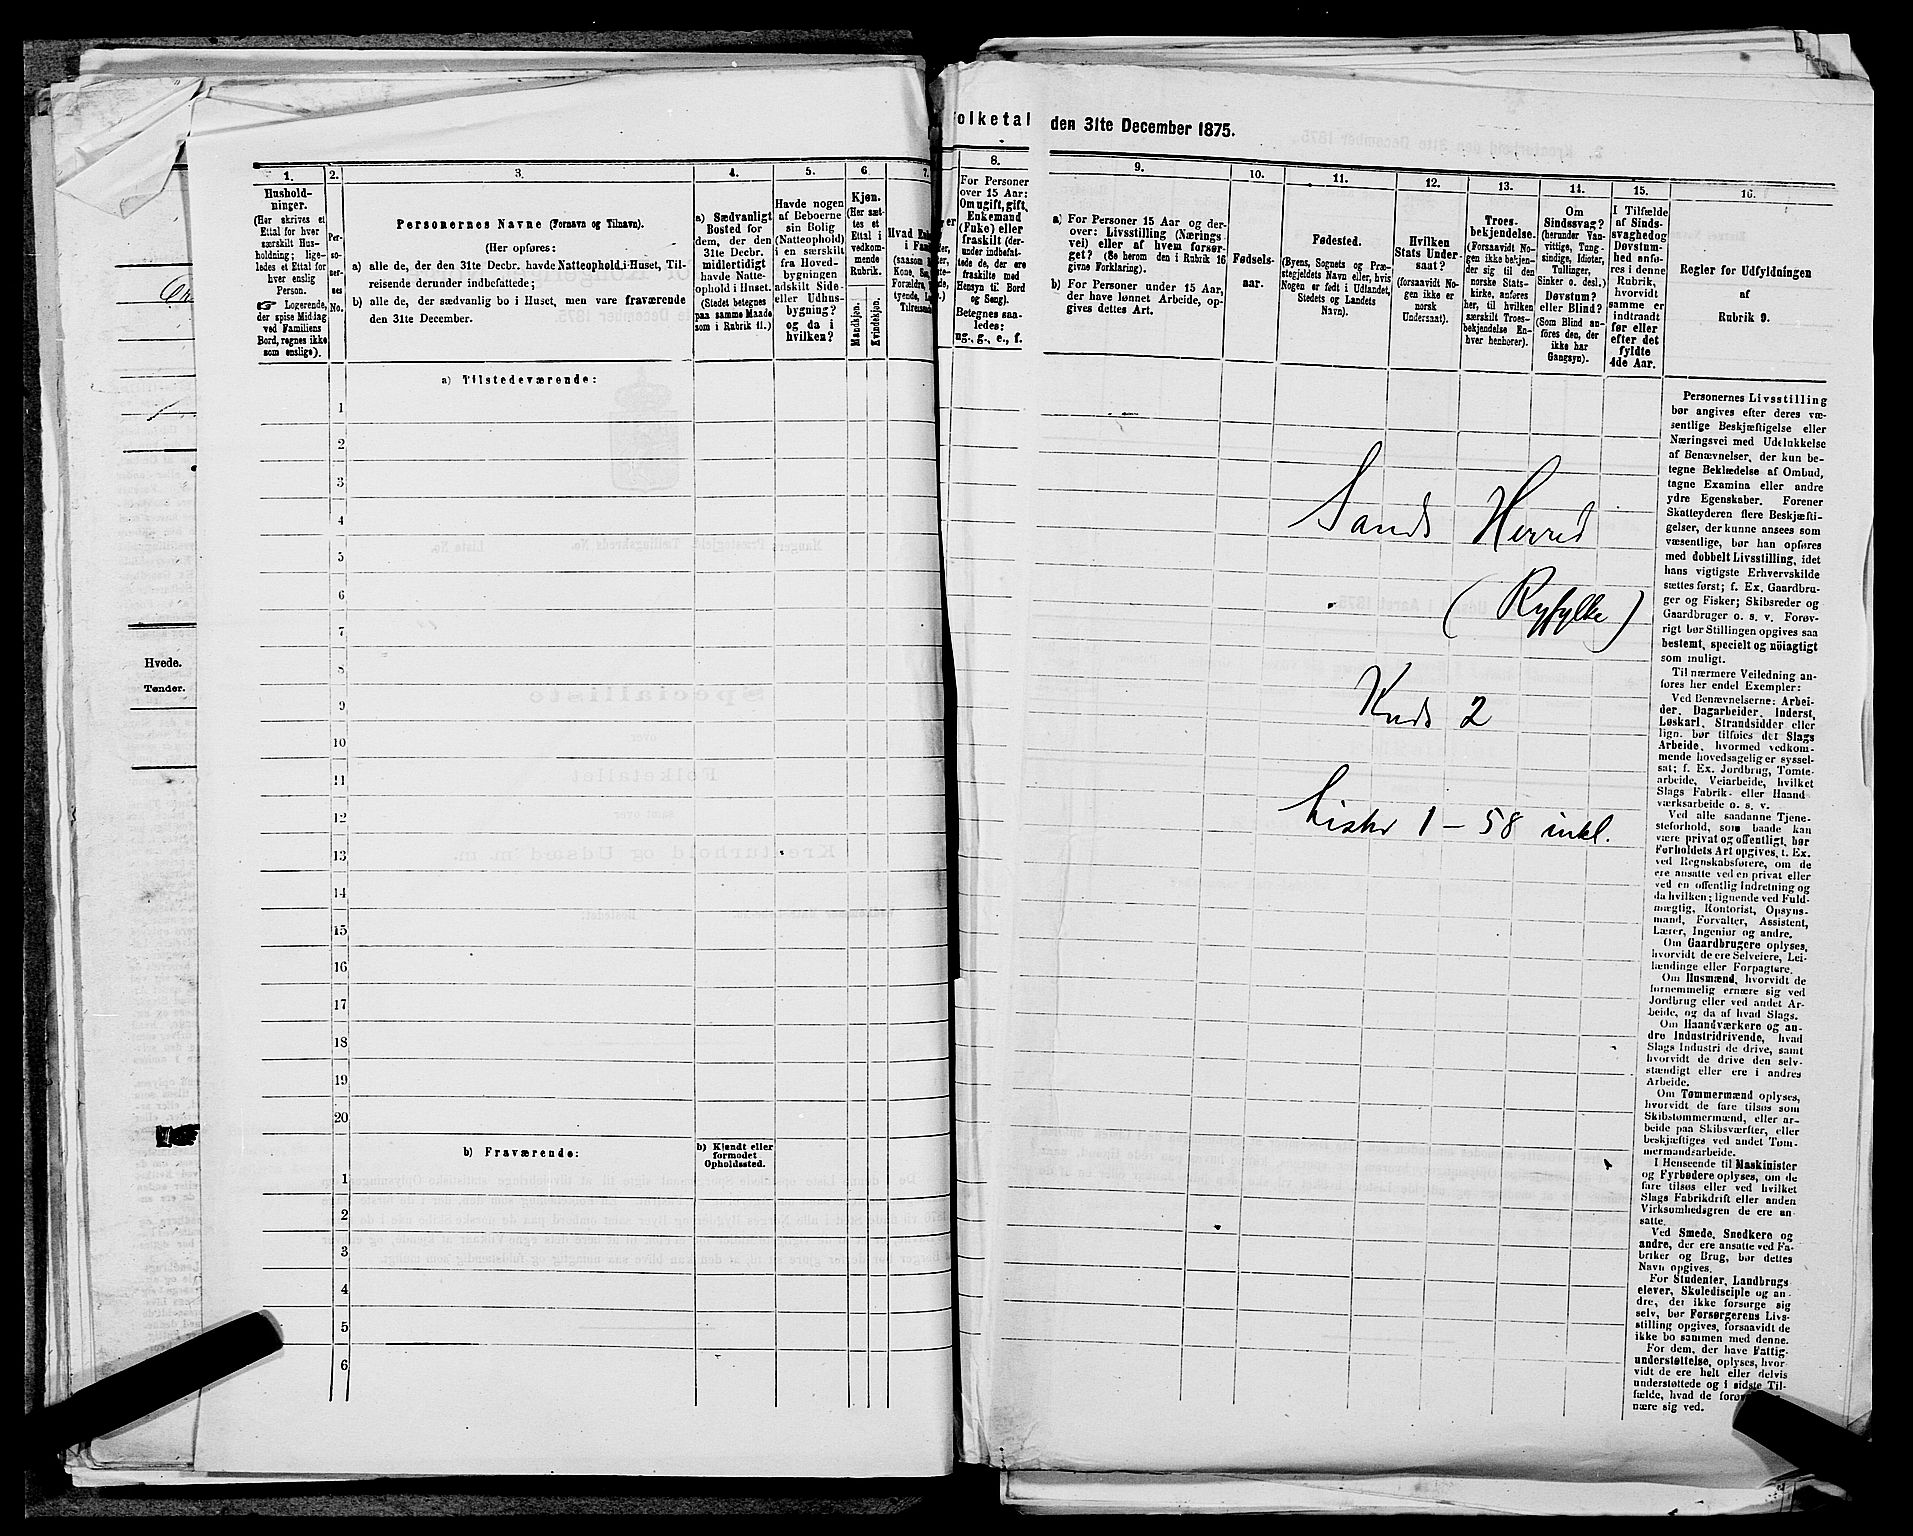 Hvede.
Tønder.
1.
Hushold-
ninger.
(Her skrives et
Ettal for hver
særskilt Hus-
holdning; lige-
ledes et Ettal for
hver enslig
Person.
☞ Logerende,
der spise Middag
ved Familiens
Bord, regnes ikke
som enslige).
2.
Per-
so-
ner-
nes
No.
3.
Personernes Navne (Fornavn og Tilnavn).
(Her opføres:
a) alle de, der den 31te Decbr. havde Natteophold i Huset, Til-
reisende derunder indbefattede;
b) alle de, der sædvanlig bo i Huset, men vare fraværende
den 31te December.
4.
a) Sædvanligt
Bosted for
dem, der den
31te Decbr.
midlertidigt
havde Natte-
ophold i Huset.
(Stedet betegnes
paa samme Maade
som i Rubrik 11.)
5.
Havde nogen
af Beboerne
sin Bolig
(Natteophold)
i en særskilt
fra Hoved-
bygningen
adskilt Side-
eller Udhus-
bygning?
og da i
hvilken?
6.
Kjøn.
(Her sæt-
tes et
Ettal i
vedkom-
mende
Rubrik.
Mandkjøn.
Kvindekjøn.
7.
Hvad
i
(saasom
Kone,
Forældre,
tyende,
a) Tilstedeværende:
1
2
3
4
5
6
7
8
9
10
11
12
13
14
15
16
17
18
19
20
b) Fraværende:
b) Kjendt eller
formodet
Opholdssted.
1
2
3
4
5
6
olketal
8.
For Personer
over 15 Aar:
Om ugift, gift,
Enkemand
(Fuke) eller
fraskilt (der-
under indbefat-
tede de, der ere
fraskilte med
Hensyn til Bord
og Seng).
Betegnes saa-
ledes:
ug., g., e., f.
den 31te December 1875.
9.
a) For Personer 15 Aar og der-
over: Livsstilling (Nærings-
vei) eller af hvem forsør-
get? (Se herom den i Rubrik 16
givne Forklaring).
b) For Personer under 15 Aar,
der have lønnet Arbeide, op-
gives dettes Art.
10.
Fødsels-
aar.
11.
Fødested.
(Byens, Sognets og Præ-
stegjeldets Navn eller, hvis
Nogen er født i Udlandet,
Stedets og Landets
Navn).
12.
Hvilken
Stats Under-
saat?
(forsaavidt No-
gen ikke er
norsk
Undersaat).
13.
Troes-
bekjendelse.
(Forsaavidt No-
gen ikke bekjen-
der sig til den
norske Stats-
kirke, anføres
her, til hvilken
særskilt Troes-
bekjendelse En-
hver henhører).
14.
Om
Sindssvag?
(herunder Van-
vittige, Tung-
sindige, Idioter,
Tullinger,
Sinker o. desl.)
Døvstum?
eller Blind?
(Som Blind an-
føres den, der
ikke har
Gangsyn).
15.
I Tilfælde
af Sinds-
svaghed og
Døvstum-
hed anfø-
res i denne
Rubrik,
hvorvidt
samme er
indtraadt
før eller
efter det
fyldte
4de Aar.
16.
Regler for Udfyldningen
af
Rubrik 9.
Sands Herred
(Ryfylke)
Kreds 2
Lister 1 - 58 inkl.
Personernes Livsstilling
bør angives efter deres væ-
sentlige Beskjæftigelse eller
Næringsvei med Udelukkelse
af Benævnelser, der kun be-
tegne Beklædelse af Ombud,
tagne Examina eller andre
ydre Egenskaber. Forener
Skatteyderen flere Beskjæfti-
gelser, der kunne ansees som
væsentlige, bør han opføres
med dobbelt Livsstilling, idet
hans vigtigste Erhvervskilde
sættes først; f. Ex. Gaardbru-
ger og Fisker; Skibsreder og
Gaardbruger o. s. v. Forøv-
rigt bør Stillingen opgives saa
bestemt, specielt og nöiagtigt
som muligt.
Til nærmere Veiledning an-
føres her endel Exempler:
Ved Benævnelserne: Arbei-
der, Dagarbeider, Inderst,
Løskarl, Strandsidder eller
lign. bør tilføies det Slags
Arbeide, hvormed vedkom-
mende hovedsagelig er syssel-
sat; f. Ex. Jordbrug, Tomte-
arbeide, Veiarbeide, hvilket
Slags Fabrik- eller Haand
værksarbeide o. s. v.
Ved alle saadanne Tjene-
steforhold, som baade kan
være privat og offentligt, bør
Forholdets Art opgives, f. Ex.
ved Regnskabsførere, om de
ere ansatte ved en privat eller
ved en offentlig Indretning og
da hvilken; lignende ved Fuld-
mægtig, Kontorist, Opsyns-
mand, Forvalter, Assistent,
Lærer, Ingeniør og andre.
Om Gaardbrugere oplyses,
hvorvidt de ere Selveiere, Lei-
lændinge eller Forpagtere.
Om Husmænd, hvorvidt de
fornemmelig ernære sig ved
Jordbrug eller ved andet Ar-
beide, og da af hvad Slags.
Om Haandværkere og an-
dre Industridrivende, hvad
Slags Industri de drive, samt
hvorvidt de drive den selv-
stændigt eller ere i andres
Arbeide.
Om Tømmermænd oplyses,
hvorvidt de fare tilsøs som
Skibstømmermænd, eller ar-
beide paa Skibsværfter, eller
beskjæftiges ved andet Tøm-
mermandsarbeide.
I Henseende til Maskinister
og Fyrbødere oplyses, om de
fare tilsøs eller ved hvilket
Slags Fabrikdrift eller anden
Virksomhedsgren de ere an-
satte.
Ved Smede, Snedkere og
andre, der ere ansatte ved Fa-
briker og Brug, bør dettes
Navn opgives.
For Studenter, Landbrugs
elever, Skoledisciple og an-
dre, der ikke forsørge sig
selv, bør Forsørgerens Livs-
stilling opgives, forsaavidt de
ikke bo sammen med denne.
For dem, der have Fattig-
understøttelse, oplyses, hvor-
vidt de ere helt eller delvis
understøttede og i sidste Til-
fælde, hvad de
nære sig ved.